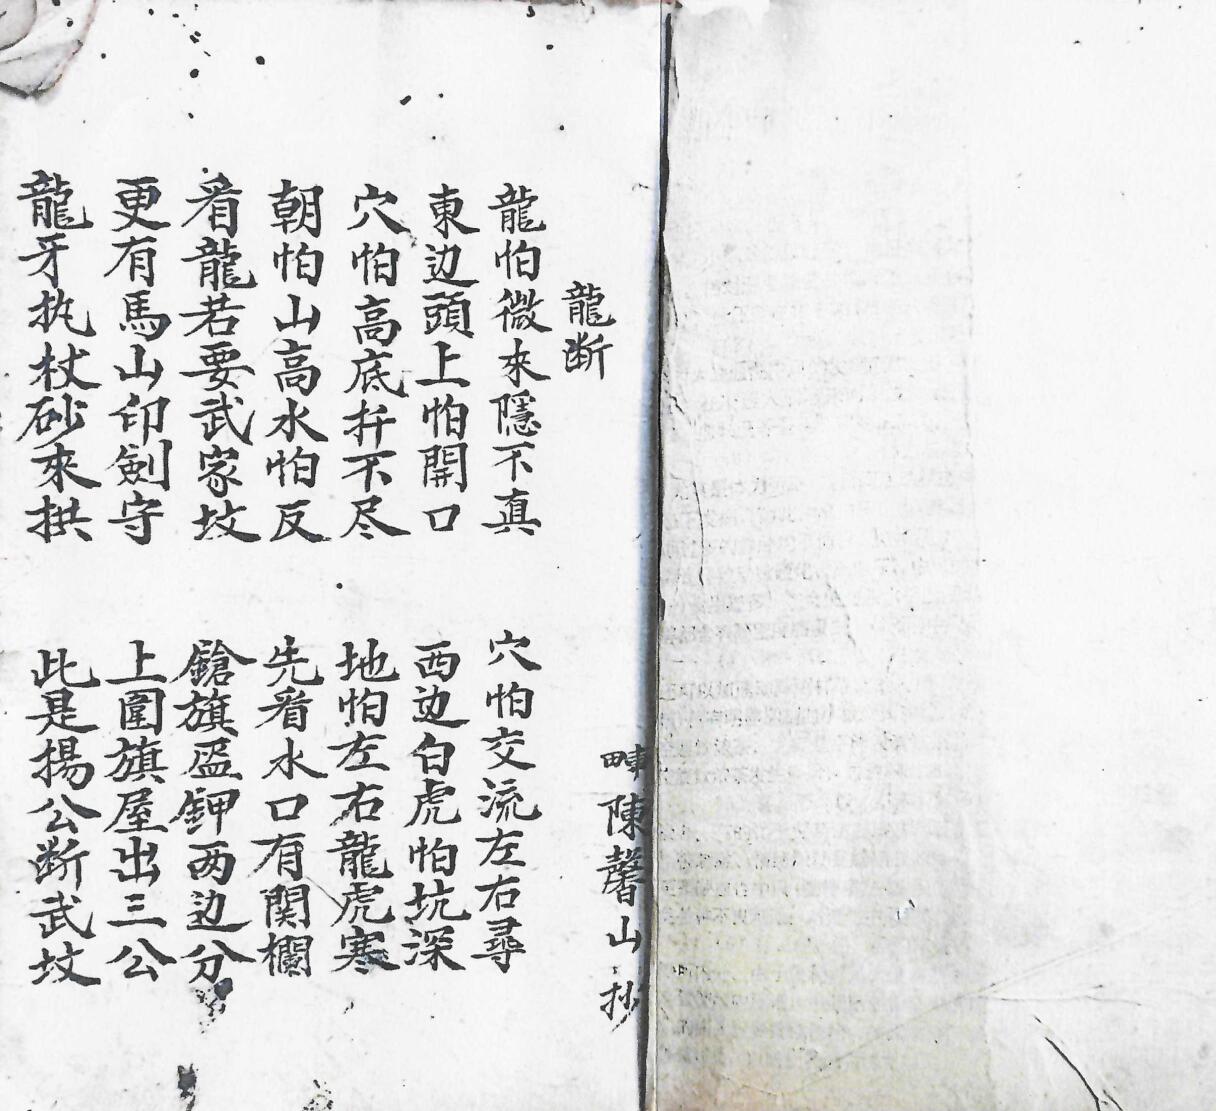 陳馨山抄
龍断
龍怕微來隱不真　穴怕交流左右尋
東边頭上怕開口　西边白虎怕坑深
穴怕高底扦不尽　地怕左右龍虎寒
朝怕山高水怕反　先看水口有関欄
看龍若要武家坟　鎗旗盔鉀两边分
更有馬山印劍守　上圍旗屋出三公
龍牙执杖砂來拱　此是楊公断武坟